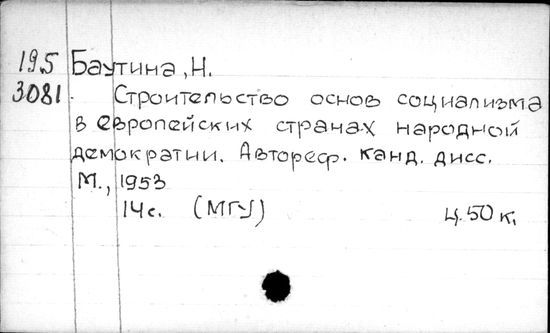 195 Баутина, Н.
3081. Строительство основ социализма
в европейских странах народной
демократии. Автореф. канд. дисс.
М., 1953
14 с. (МГУ) ц. 50 к.